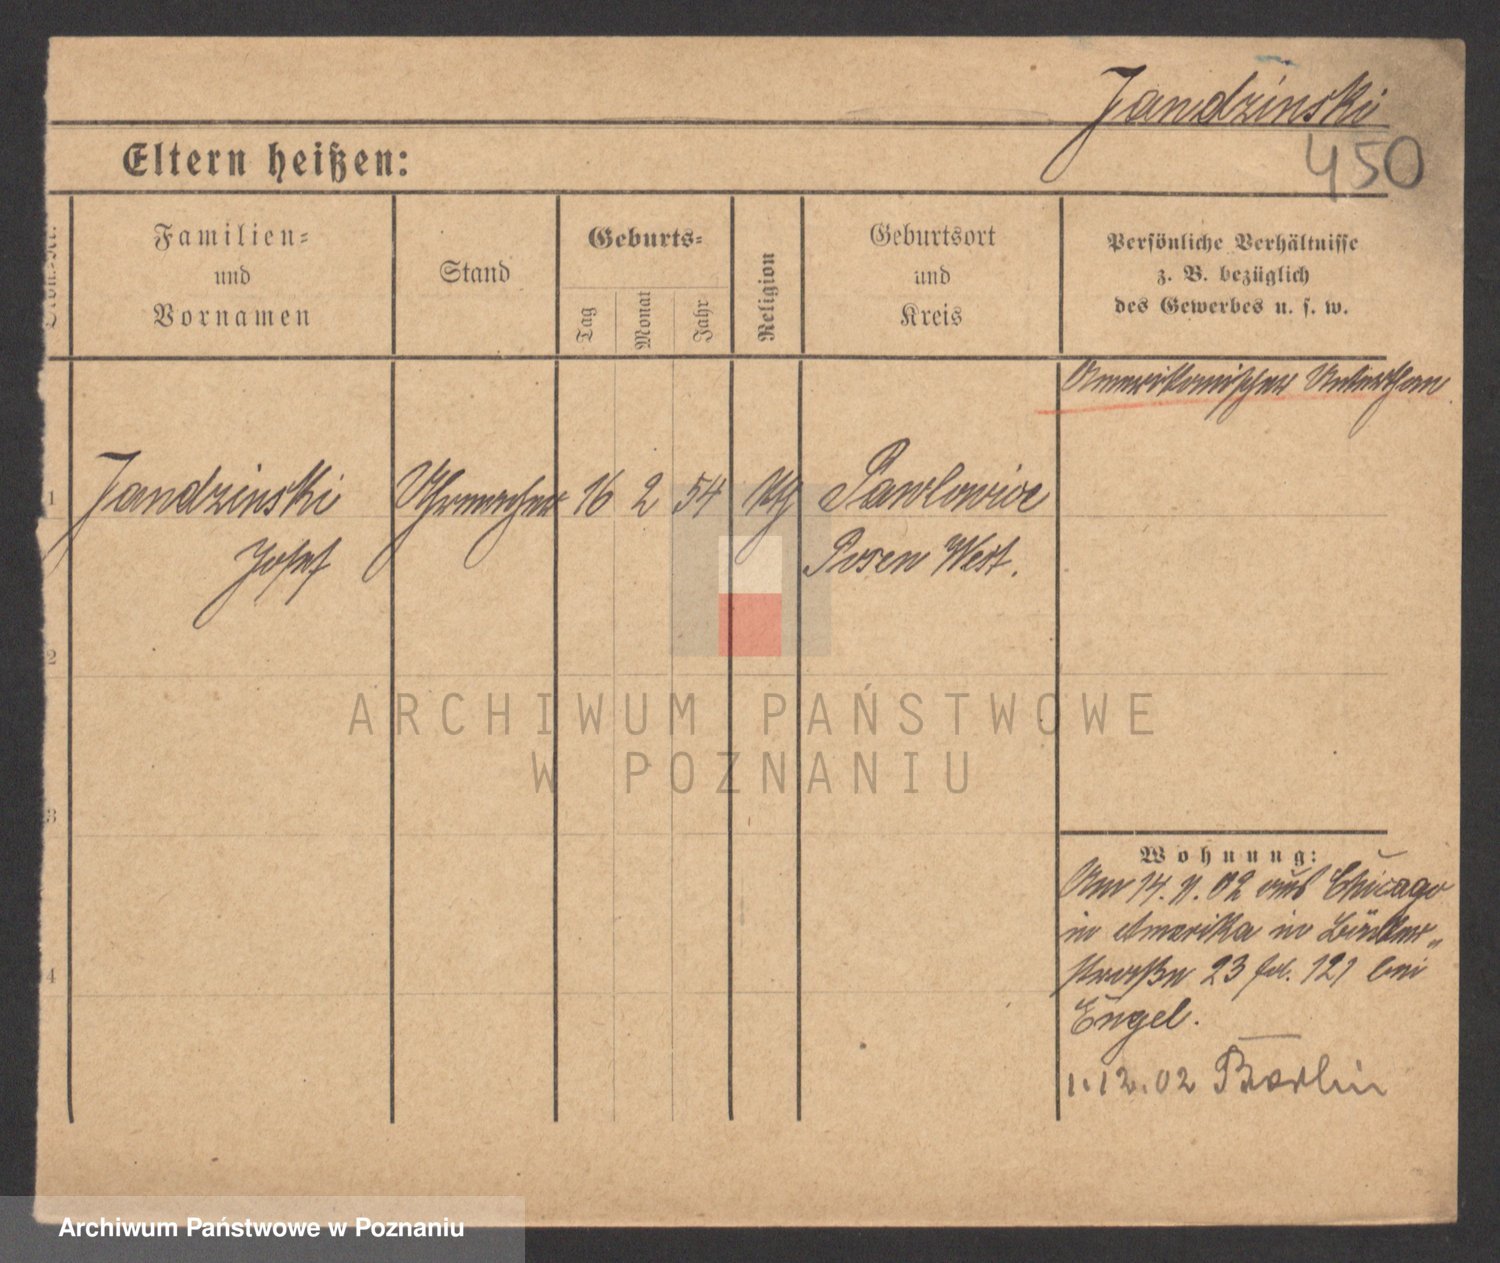 Jandzinski
450
Eltern heißen:
Familien=
und
Vornamen
Stand
Geburts=
Tag
Monat
Jahr
Religion
Geburtsort
und
Kreis
Persönliche Verhältnisse
z. B. bezüglich
des Gewerbes u. s. w.
Amerikanischer Unterthan
1 Jandzinski Uhrmacher 16 2 54 Pawlowice
Josef Posen West.
2
ARCHIWUM PAŃSTWOWE
W POZNANIU
3
Wohnung:
Am 14. 11. 02 aus Chicago
in Amerika in
straße 23 fol. 121 bei
4
Engel.
1.12.02 Berlin
Archiwum Państwowe w Poznaniu